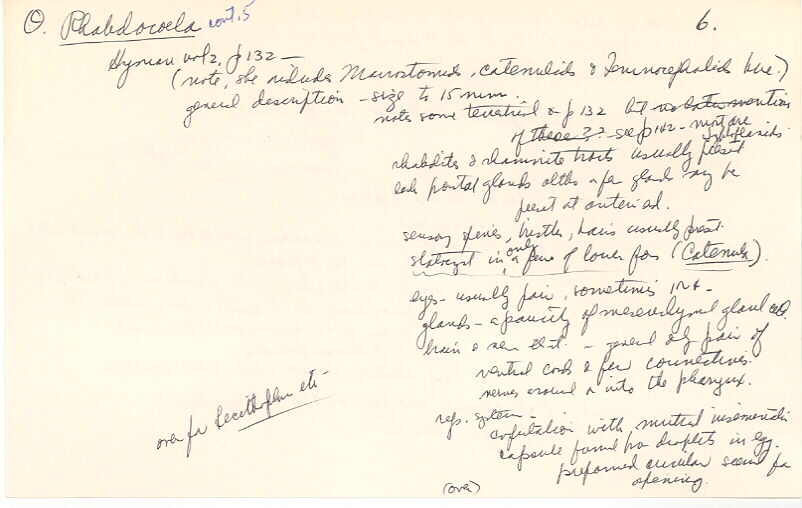 O. Rhabdocoela cont. 5
6.
Hyman vol 2, p 132 —
(note, she includes Macrostomids, catenulids & Temnocephalids here.)
general description - size to 15 mm.
notes some terrestrial on p 132 but no later mention
of these ?? see p 142 - most are
Typhloplanids.
rhabdites & rhammite tracts usually present
lack frontal glands altho a few glands may be
present at anterior end.
sensory spines, bristles, hairs usually present.
statocyst in only a few of lower fams (Catenula).
eyes - usually pair, sometimes 1 or 4 -
glands - a paucity of mesenchymal gland cells.
brain & nerv. syst. - general only pair of
ventral cords & few connectives.
nerves around or into the pharynx.
over for Lecithophora etc -
rep. system -
copulation with mutual insemination
capsule formed from droplets in egg.
preformed circular seam for
opening.
(over)